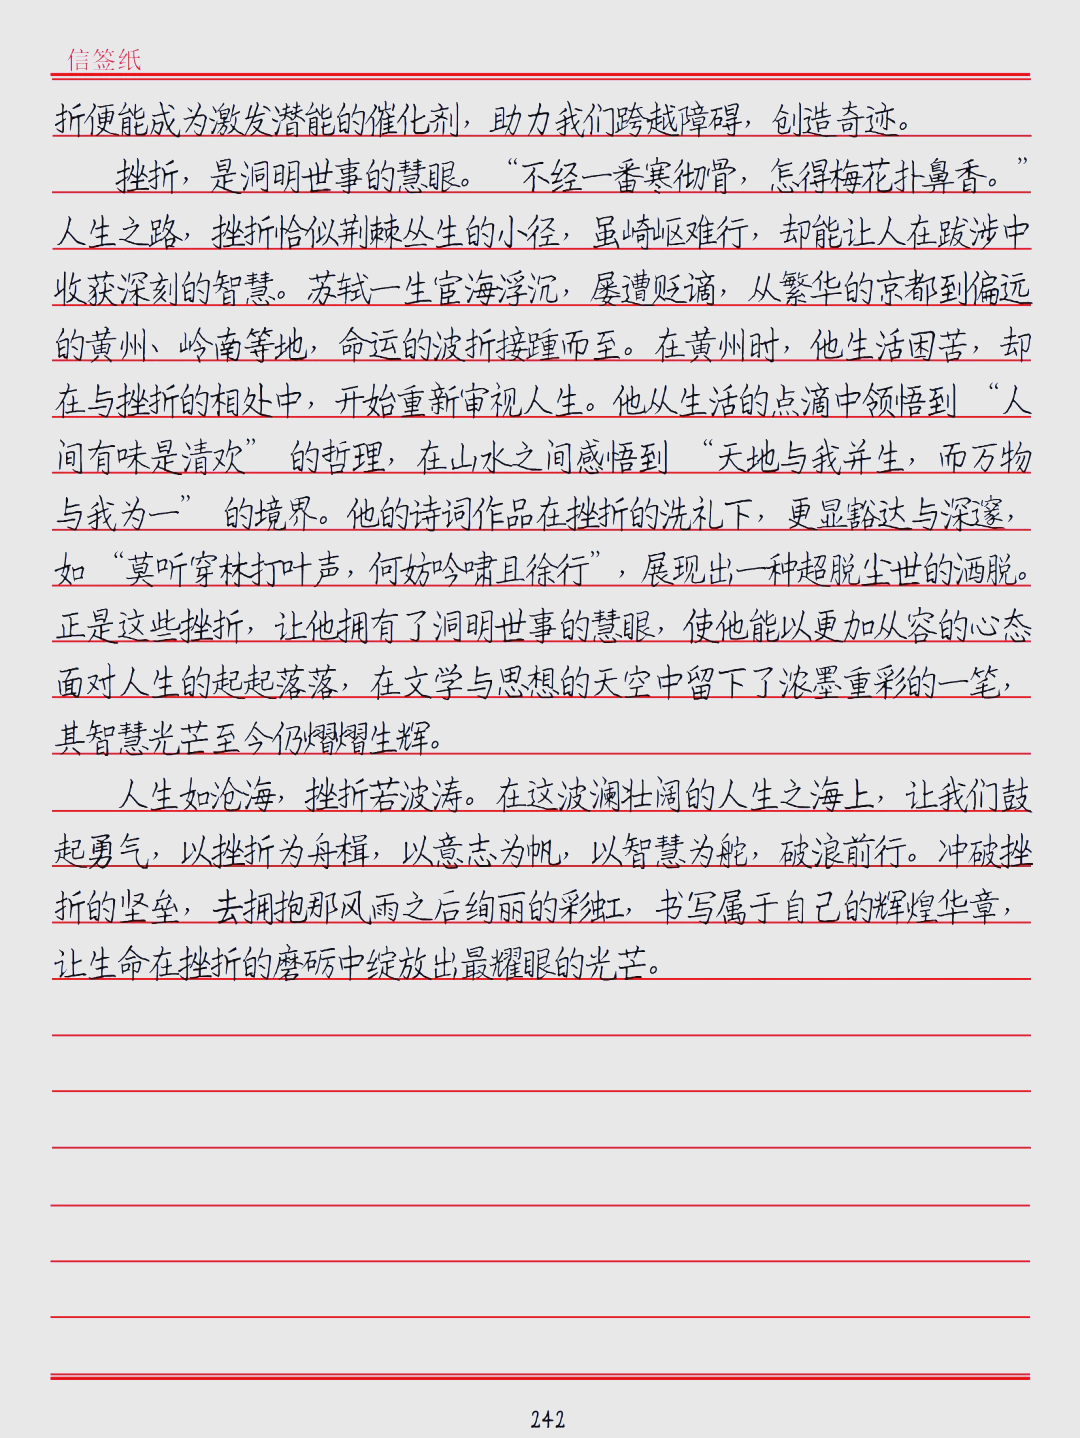 信签纸
折便能成为激发潜能的催化剂，助力我们跨越障碍，创造奇迹。
挫折，是洞明世事的慧眼。“不经一番寒彻骨，怎得梅花扑鼻香。”
人生之路，挫折恰似荆棘丛生的小径，虽崎岖难行，却能让人在跋涉中
收获深刻的智慧。苏轼一生宦海浮沉，屡遭贬谪，从繁华的京都到偏远
的黄州、岭南等地，命运的波折接踵而至。在黄州时，他生活困苦，却
在与挫折的相处中，开始重新审视人生。他从生活的点滴中领悟到“人
间有味是清欢”的哲理，在山水之间感悟到“天地与我并生，而万物
与我为一”的境界。他的诗词作品在挫折的洗礼下，更显豁达与深邃，
如“莫听穿林打叶声，何妨吟啸且徐行”，展现出一种超脱尘世的洒脱。
正是这些挫折，让他拥有了洞明世事的慧眼，使他能以更加从容的心态
面对人生的起起落落，在文学与思想的天空中留下了浓墨重彩的一笔，
其智慧光芒至今仍熠熠生辉。
人生如沧海，挫折若波涛。在这波澜壮阔的人生之海上，让我们鼓
起勇气，以挫折为舟楫，以意志为帆，以智慧为舵，破浪前行。冲破挫
折的坚垒，去拥抱那风雨之后绚丽的彩虹，书写属于自己的辉煌华章，
让生命在挫折的磨砺中绽放出最耀眼的光芒。
242